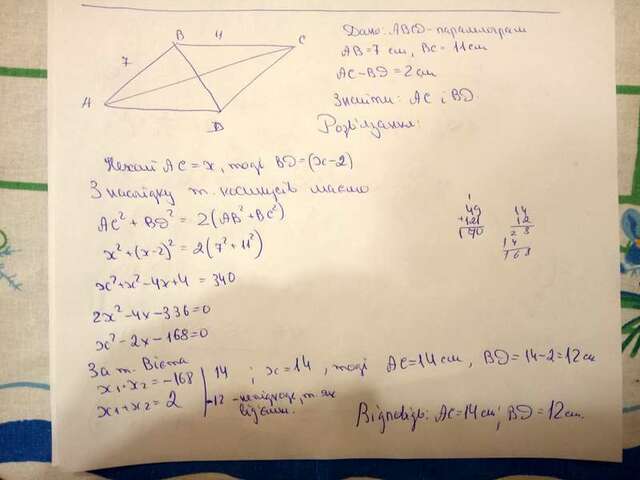 B 4 C
7
A
D
Дано: ABCD - паралелограм
AB = 7 см, BC = 11 см
AC - BD = 2 см
Знайти: AC і BD
Розв'язання:
Нехай AC = x, тоді BD = (x-2)
З наслідку т. косинусів маємо
AC² + BD² = 2(AB² + BC²)
x² + (x-2)² = 2(7² + 11²)
x² + x² - 4x + 4 = 340
2x² - 4x - 336 = 0
x² - 2x - 168 = 0
1
49
+121
170
14
12
2 8
14
168
За т. Вієта
x₁ · x₂ = -168 | 14 ; x = 14, тоді AC = 14 см, BD = 14 - 2 = 12 см
x₁ + x₂ = 2 | -12 - т. як
Відповідь: AC = 14 см; BD = 12 см.